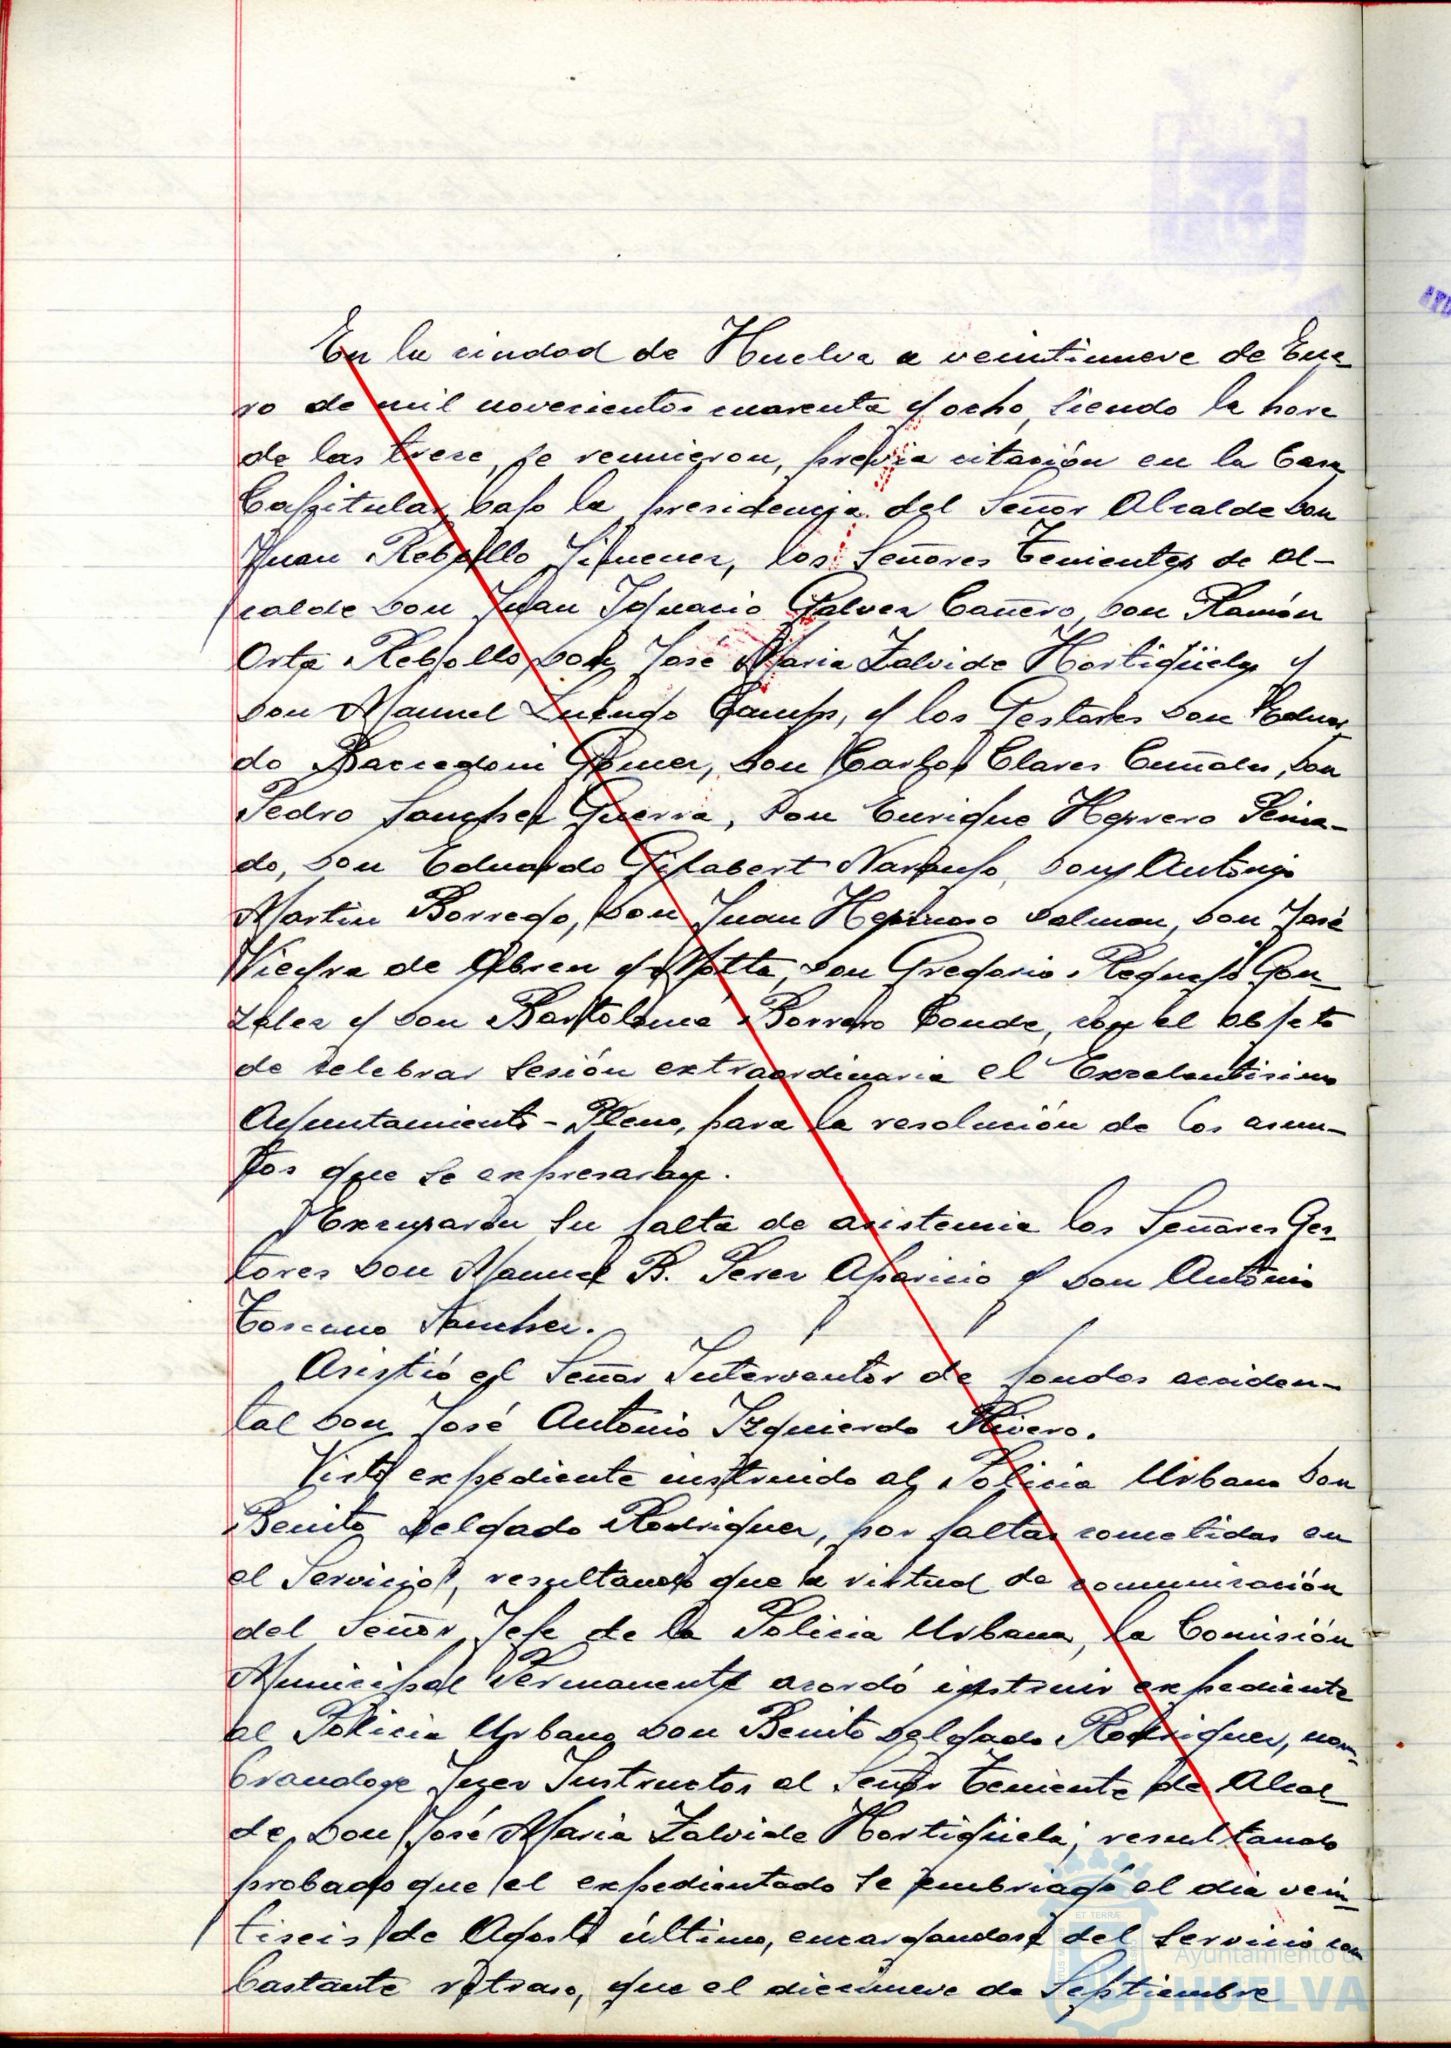 En la ciudad de Huelva a veintinueve de Ene-
ro de mil novecientos cuarenta y ocho, siendo la hora
de las trece, se reunieron, previa citación en la Casa
Capitular bajo la presidencia del Señor Alcalde Don
Juan Rebollo Jimenez, los Señores Tenientes de Al-
calde Don Juan Ignacio Galvez Cañero, Don Ramón
Orta Rebollo, Don José Maria Zalvide Hortigüela y
Don Manuel Luengo Camps, y los Gestores Don Eduar
do Gomez, Don Carlos Clares Don
Pedro Sanchez Guerra, Don Enrique Herrero
do, Don Eduardo Gilabert Naranjo, Don Antonio
Martin Borrego, Don Juan Hermoso Dalman, Don José
Vieyra de Abreu y Motta, Don Gregorio Requejo Gon-
zalez y Don Bartolomé Borrero Conde, con el objeto
de celebrar sesión extraordinaria el Excelentisimo
Ayuntamiento-Pleno, para la resolución de los asun-
tos que se expresaran.
Excusaron su falta de asistencia los Señores Ges-
tores Don Manuel B. Perez Aparicio y Don Antonio
Toscano Sanchez.
Asistió el Señor Interventor de fondos acciden-
tal Don José Antonio Izquierdo Rivero.
Visto expediente instruido al Policia Urbano Don
Benito Delgado Rodriguez, por faltas cometidas en
el Servicio, resultando que a virtud de comunicación
del Señor Jefe de la Policia Urbana, la Comisión
Municipal Permanente acordó instruir expediente
al Policia Urbano Don Benito Delgado Rodriguez, nom-
brandose Juez Instructor al Señor Teniente de Alcal
de, Don José Maria Zalvide Hortigüela; resultando
probado que el expedientado se embriagó el dia vein-
tiseis de Agosto último, encargandose del servicio con
bastante retraso, que el diecinueve de Septiembre
Ayuntamiento de
HUELVA